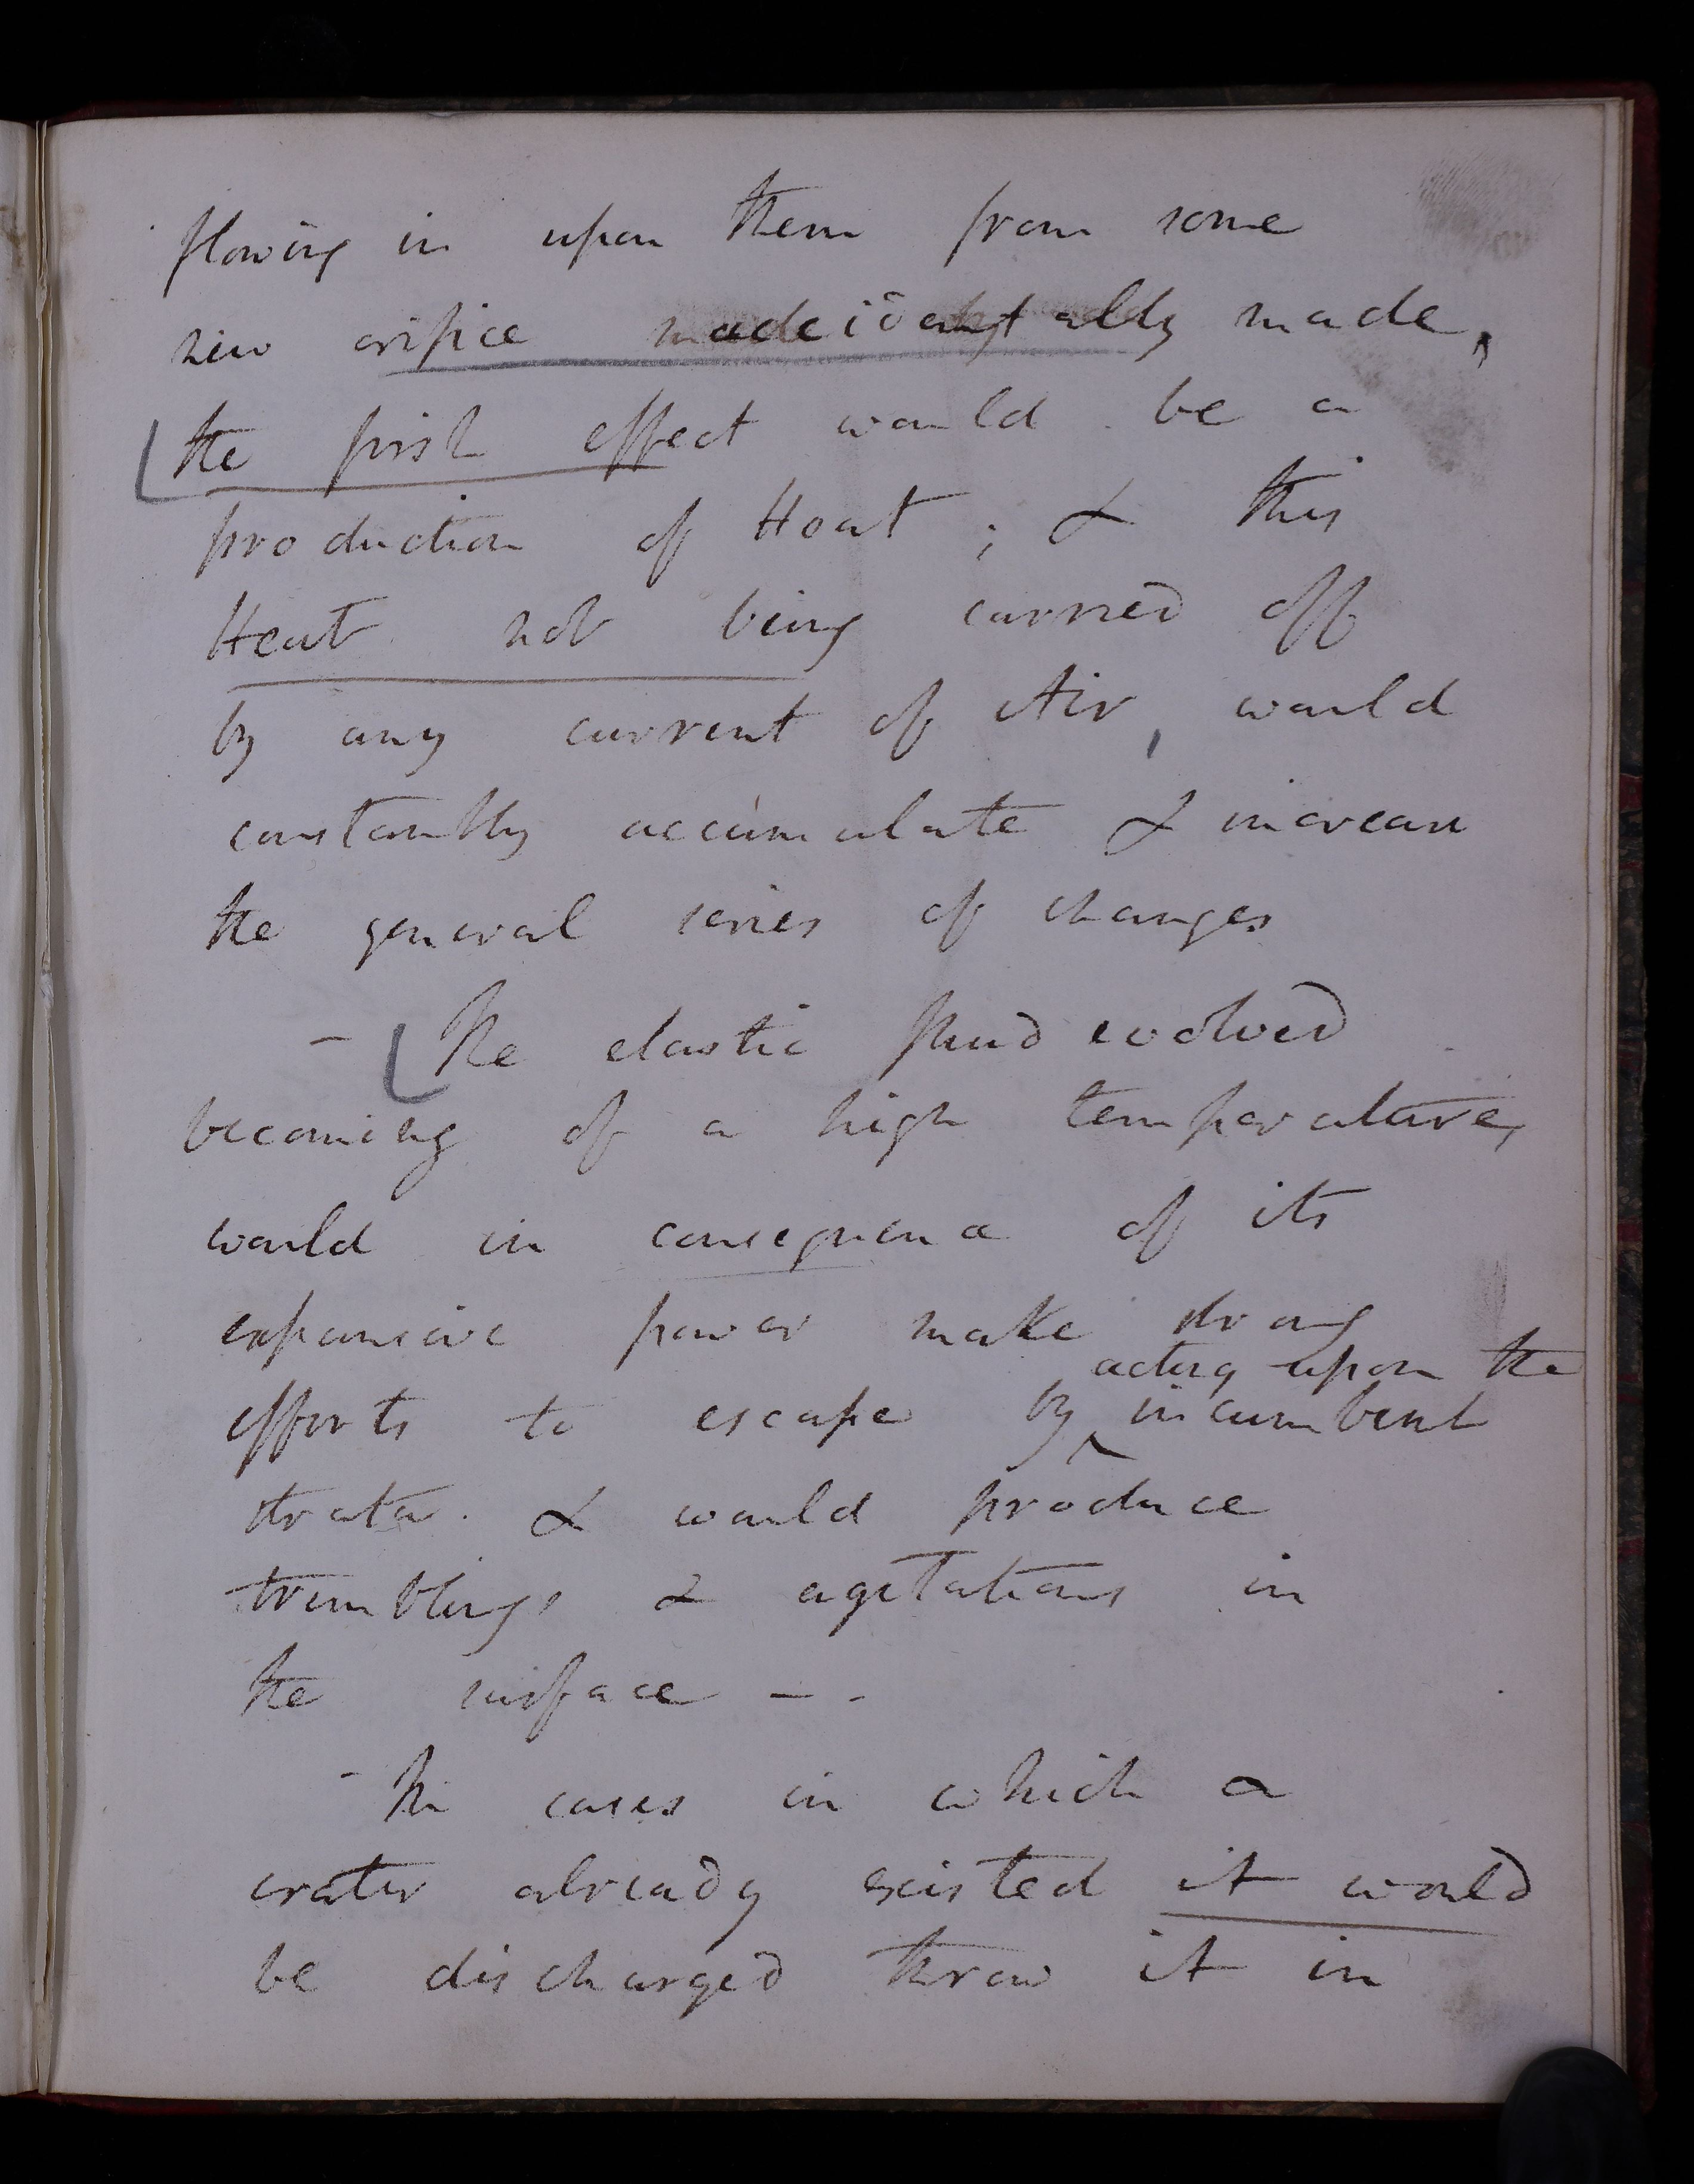 flowing in upon them from some
new orifice accidentally made,
the first effect would be a
production of Heat; & this
Heat not being carried off
by any current of Air, would
constantly accumulate & increase
the general series of changes
- The elastic fluid evolved
becoming of a high temperature,
would in consequence of its
expansive power make strong
acting upon the
efforts to escape by incumbent
strata. & would produce
tremblings & agitations in
the surface - -
- In cases in which a
crater already existed it would
be discharged throw it in